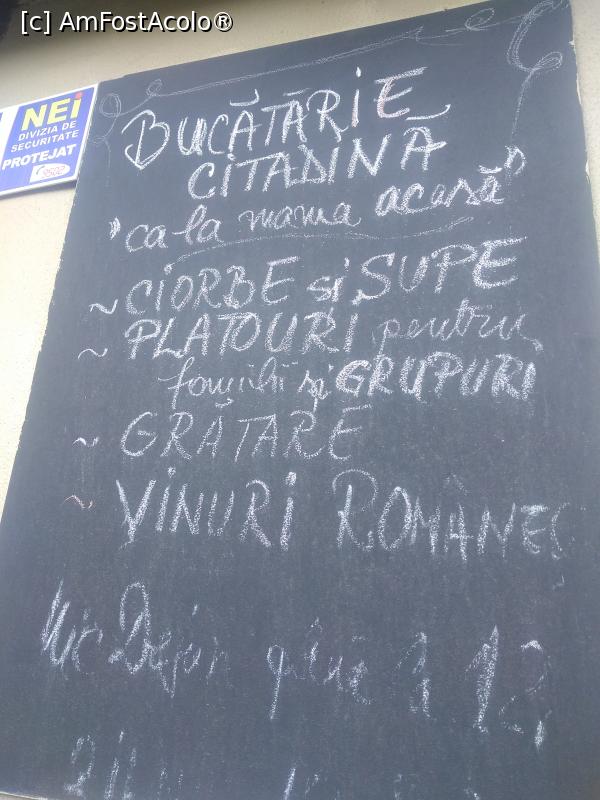 [c] AmFostAcolo®
NEi
DIVIZIA DE
SECURITATE
PROTEJAT
9500
BUCĂTĂRIE
CITADINĂ
"ca la mama acasă"
~ CIORBE și SUPE
~ PLATOURI pentru
familii și GRUPURI
~ GRĂTARE
~ VINURI ROMÂNEȘ
Mic Dejun până la 12